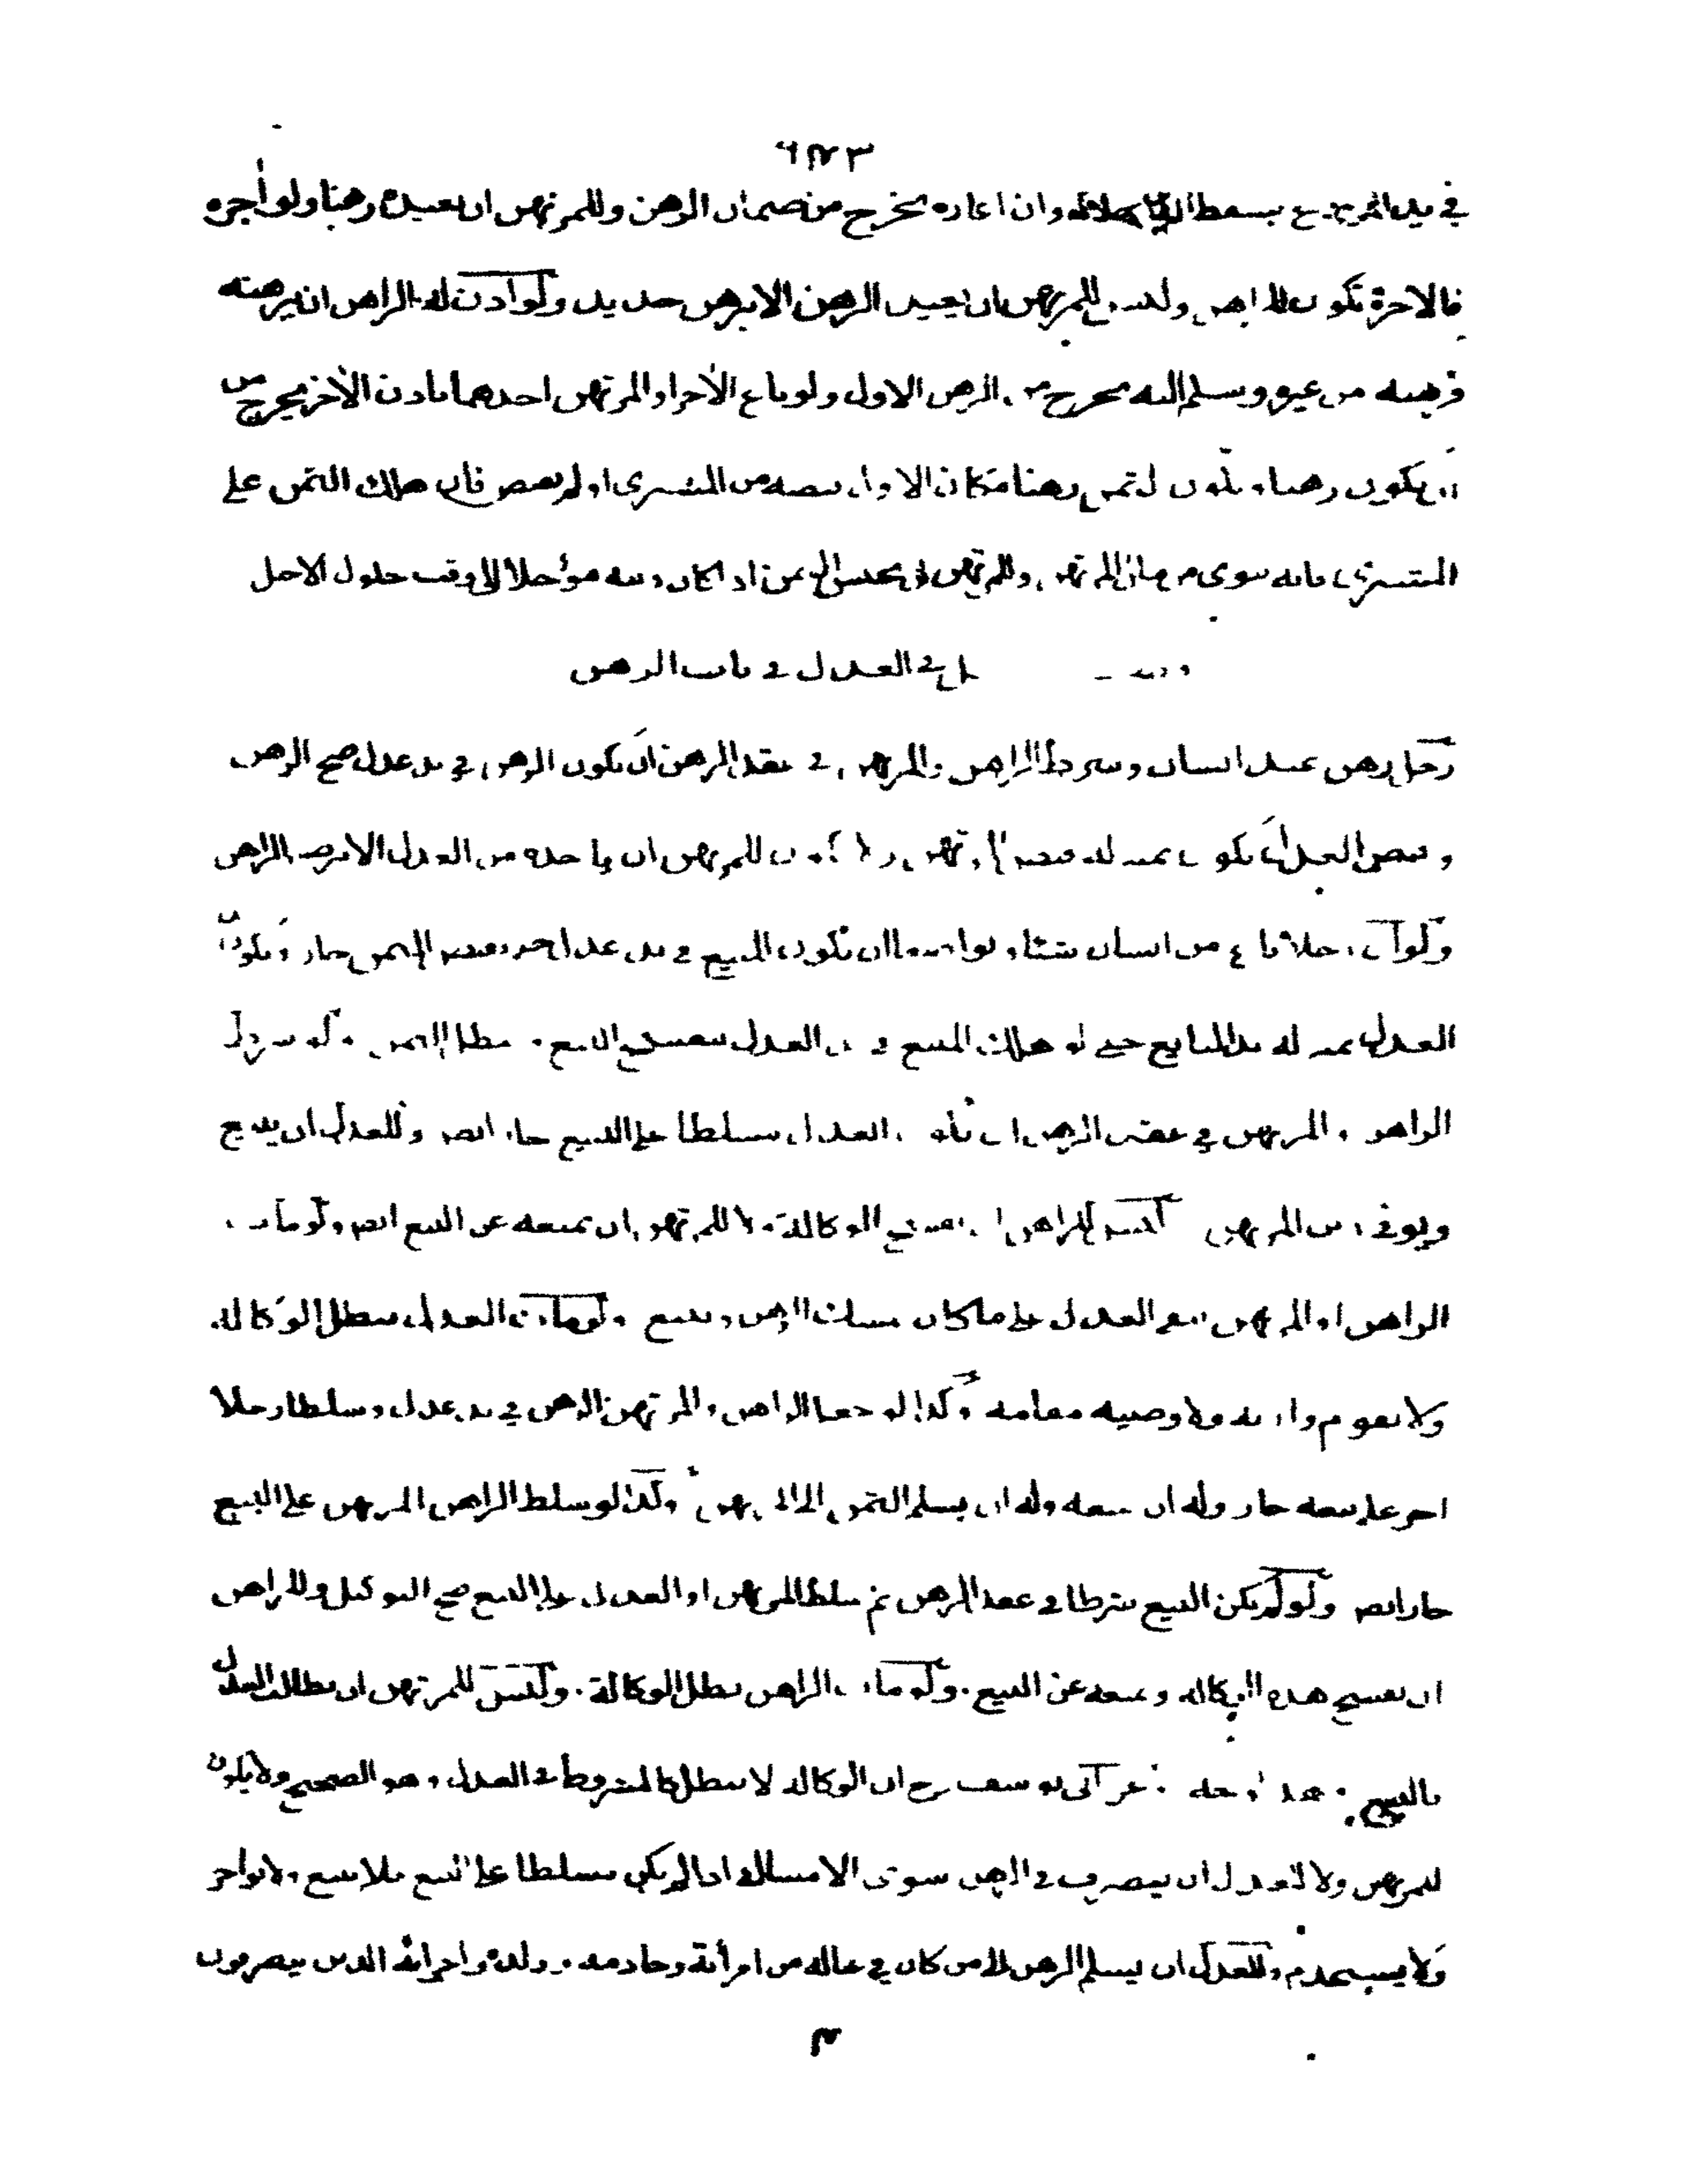 في يد المرتهن يسقط الدين بهلاكه وان اعاره يخرج من ضمان الرهن وللمرتهن ان يعيده رهنا ولو اجره
فالاجرة تكون للراهن وليس للمرتهن ان يعيد الرهن الا برهن جديد ولو اذن له الراهن ان يرهنه
فرهنه من غيره وسلم اليه يخرج من الرهن الاول ولو باع الراهن او المرتهن احدهما باذن الآخر يخرج من
ان يكون رهنا ويكون الثمن رهنا مكان الاول قبضه من المشتري او لم يقبض فان هلك الثمن على
المشتري فانه توى من مال المرتهن وللمرتهن ان يحبس الثمن اذا كان دينه مؤجلا الى وقت حلول الاجل
فصل في العدل في باب الرهن
رجل رهن عند انسان وشرط الراهن والمرتهن في عقد الرهن ان يكون الرهن في يد عدل صح الرهن
وقبض العدل يكون بمنزلة قبض المرتهن ولا يكون للمرتهن ان ياخذه من العدل الا برضا الراهن
ولو ان رجلا باع من انسان شيئا وتواضعا ان يكون المبيع في يد عدل حتى يقبض الثمن جاز ويكون
العدل بمنزلة يد البايع حتى لو هلك المبيع في يد العدل ينفسخ البيع وبطل الثمن ولو شرط
الراهن والمرتهن في عقد الرهن ان يكون العدل مسلطا على البيع جاز ايضا وللعدل ان يبيع
ويوفي دين المرتهن وليس للراهن ان يفسخ الوكالة ولا للمرتهن ان يمنعه عن البيع ايضا ولو مات
الراهن او المرتهن يبقى العدل على ما كان يمسك الرهن ويبيع ولو مات العدل بطل الوكالة
ولا يقوم وارثه ولا وصيه مقامه وكذا لو جعل الراهن والمرتهن الرهن في يد عدل وسلطا رجلا
اخر على بيعه جاز وله ان يبيعه وله ان يسلم الثمن الى المرتهن وكذا لو سلط الراهن المرتهن على البيع
جاز ايضا ولو لم يكن البيع شرطا في عقد الرهن ثم سلط المرتهن او العدل على البيع صح التوكيل وللراهن
ان يفسخ هذه الوكالة ويمنعه عن البيع ولو مات الراهن بطل الوكالة وليس للمرتهن ان يطالب العدل
بالبيع عن ابي يوسف رح ان الوكالة لا تبطل كالمشروط في العدل وهو الصحيح ولا يكون
للمرتهن ولا للعدل ان يتصرف في الرهن سوى الامساك اذا لم يكن مسلطا على البيع فلا يبيع ولا يواجر
ولا يستخدم وللعدل ان يسلم الرهن الى من كان في عياله من امرأته وخادمه وولده واجرائه الذين يتصرفون